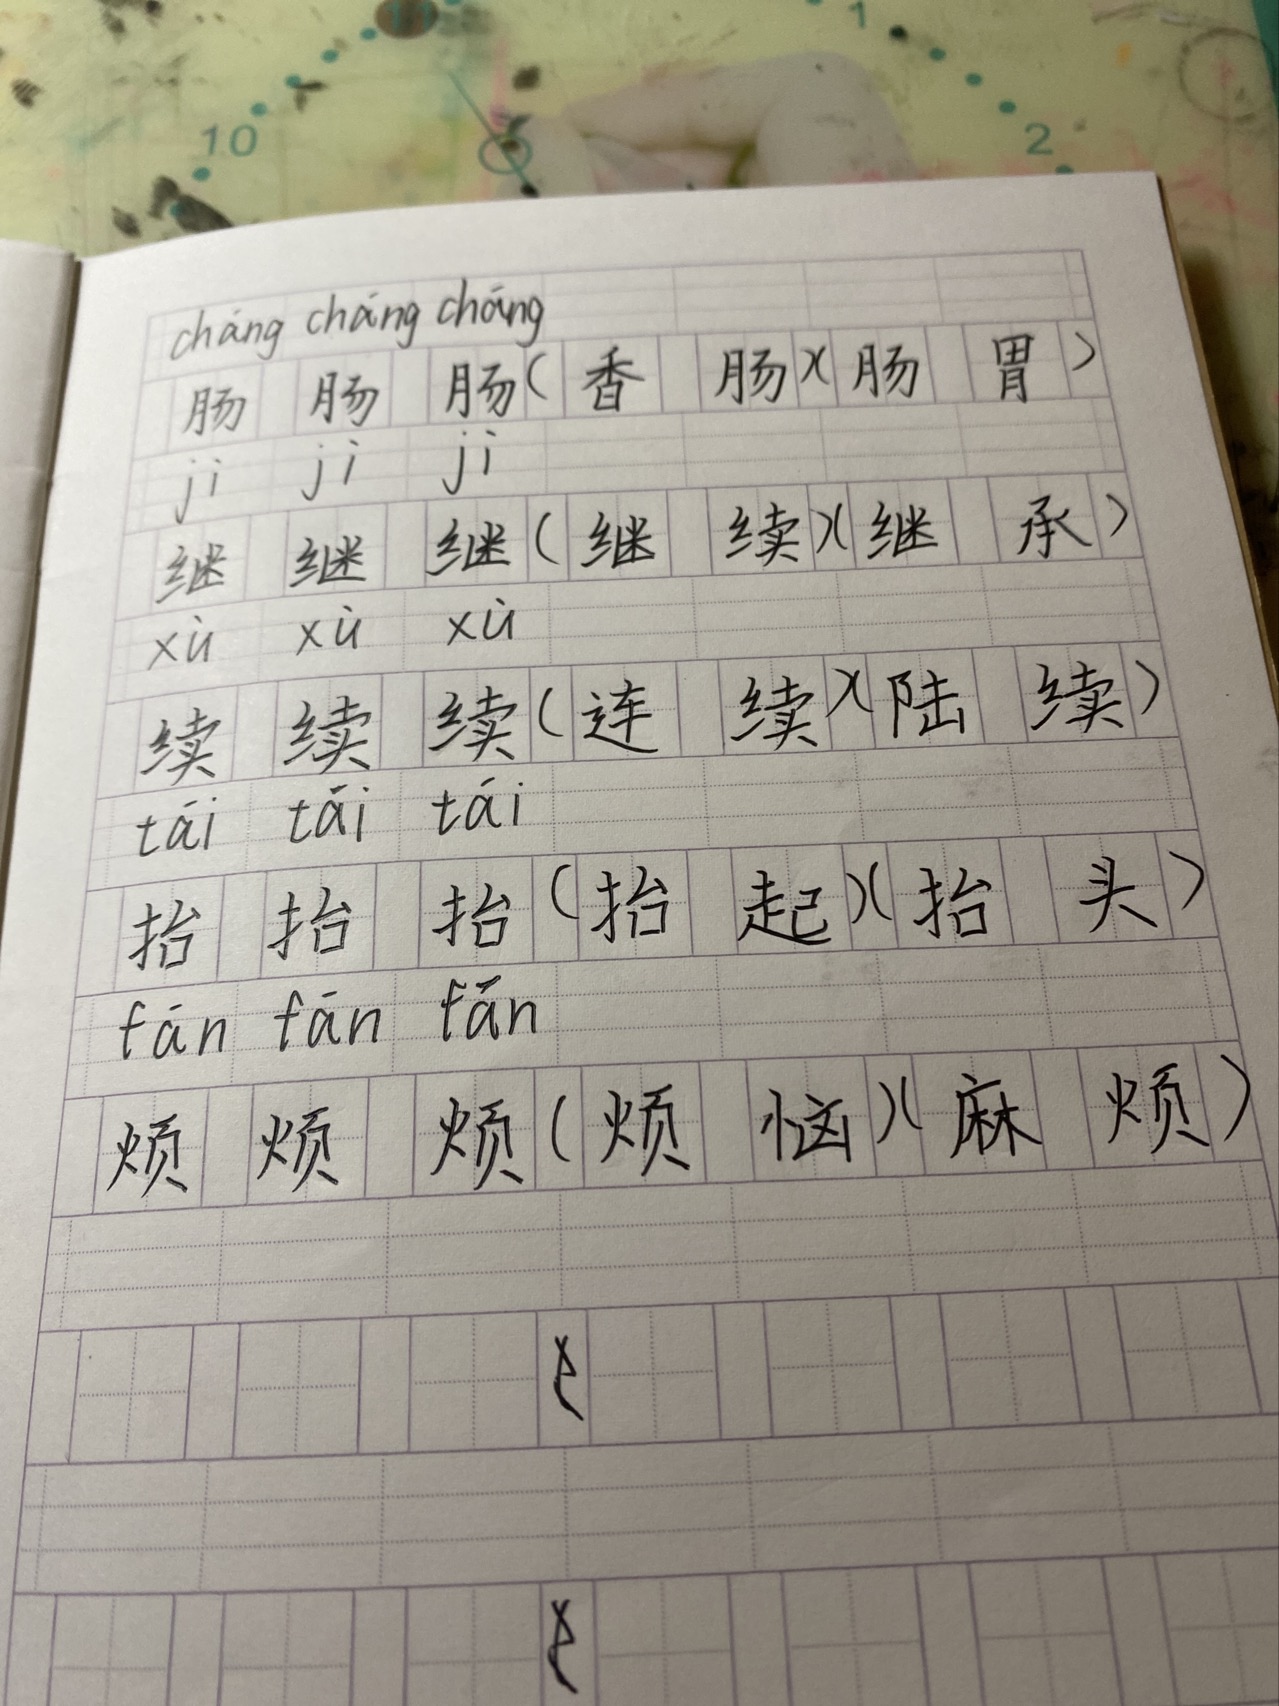 11 1
10 2
cháng cháng cháng
肠 肠 肠(香 肠)(肠 胃)
jì jì jì
继 继 继(继 续)(继 承)
xù xù xù
续 续 续(连 续)(陆 续)
tái tái tái
抬 抬 抬(抬 起)(抬 头)
fán fán fán
烦 烦 烦(烦 恼)(麻 烦)